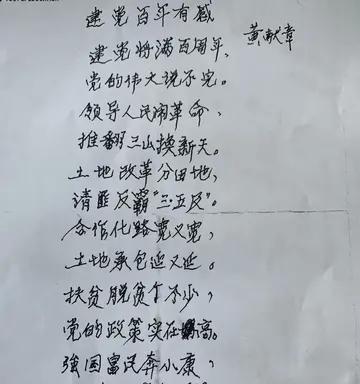 建党百年有感
黄献章
建党将满百周年,
党的伟大说不完。
领导人民闹革命,
推翻三山换新天。
土地改革分田地,
清匪反霸"三·五反"。
合作化路宽又宽,
土地承包延又延。
扶贫脱贫不少,
党的政策实在高。
强国富民奔小康,